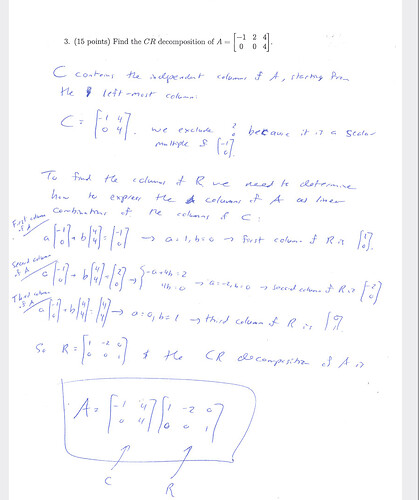 3. (15 points) Find the CR decomposition of A = [-1 2 4; 0 0 4].
C contains the independent columns of A, starting from
the left-most column:
C = [-1 4; 0 4]. we exclude [2; 0] because it is a scalar
multiple of [-1; 0].
To find the columns of R we need to determine
how to express the columns of A as linear
combinations of the columns of C:
First column of A
a[-1; 0] + b[4; 4] = [-1; 0] → a=1, b=0 → first column of R is [1; 0].
Second column of A
a[-1; 0] + b[4; 4] = [2; 0] → { -a+4b=2 4b=0 → a=-2, b=0 → second column of R is [-2; 0]
Third column of A
a[-1; 0] + b[4; 4] = [4; 4] → a=0, b=1 → third column of R is [0; 1]
So R = [1 -2 0; 0 0 1] & the CR decomposition of A is
A = [-1 4; 0 4] [1 -2 0; 0 0 1]
C R